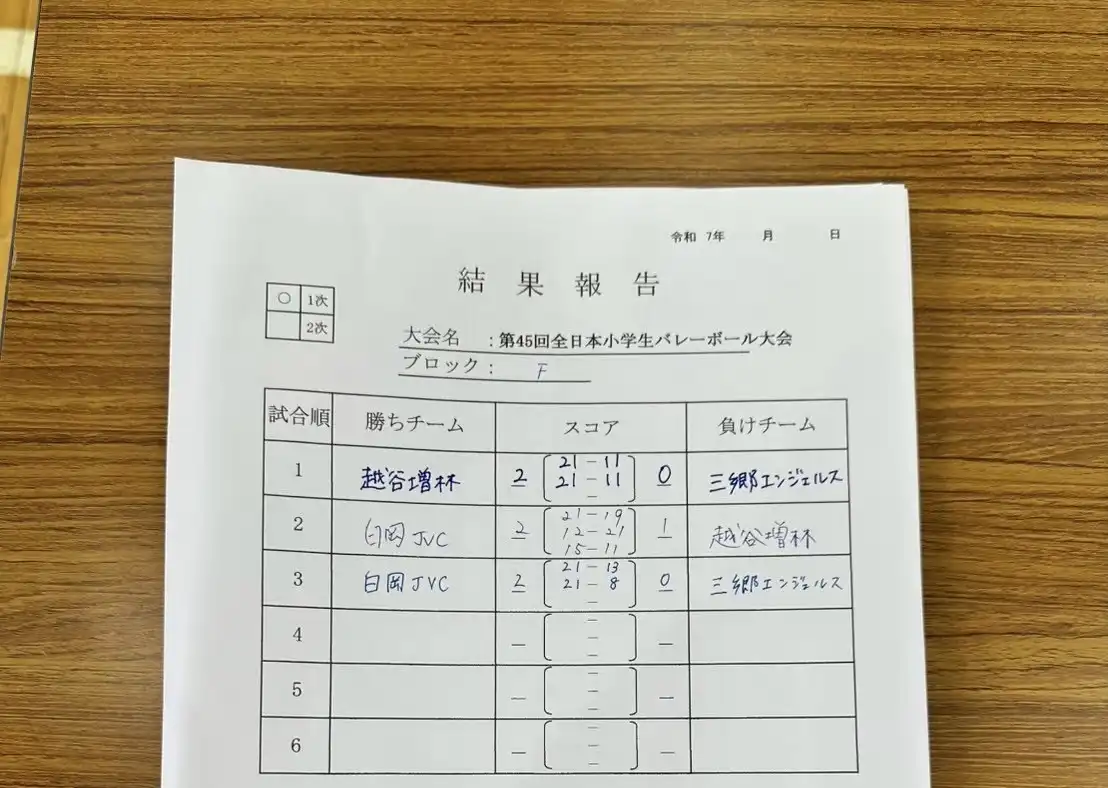 令和 7年 月 日
結果報告
○ 1次
2次
大会名 :第45回全日本小学生バレーボール大会
ブロック: F
試合順 勝ちチーム スコア 負けチーム
1 越谷増林 2 21-11 0 三郷エンジェルス
21-11
-
2 白岡JVC 2 21-19 1 越谷増林
12-21
15-11
3 白岡JVC 2 21-13 0 三郷エンジェルス
21-8
-
4 - - -
-
-
5 - - -
-
-
6 - - -
-
-